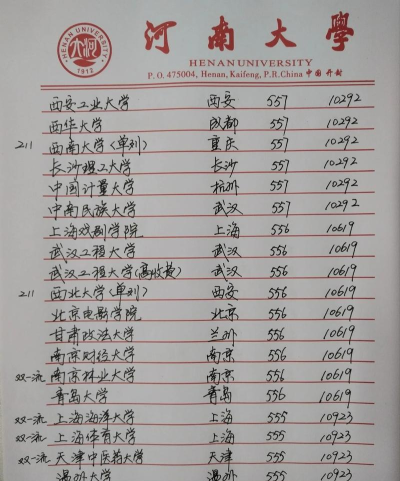 河南大學
HENAN UNIVERSITY
P. O. 475004, Henan, Kaifeng, P.R.China 中国 开封
HENAN UNIVERSITY 1912
西安工业大学 西安 557 10292
西华大学 成都 557 10292
211 西南大学(单列) 重庆 557 10292
长沙理工大学 长沙 557 10292
中国计量大学 杭州 557 10292
中南民族大学 武汉 557 10292
上海戏剧学院 上海 556 10619
武汉工程大学 武汉 556 10619
武汉工程大学(高收费) 武汉 556 10619
211 西北大学(单列) 西安 556 10619
北京电影学院 北京 556 10619
甘肃政法大学 兰州 556 10619
南京财经大学 南京 556 10619
双一流 南京林业大学 南京 556 10619
青岛大学 青岛 556 10619
双一流 上海海洋大学 上海 555 10923
双一流 上海体育大学 上海 555 10923
双一流 天津中医药大学 天津 555 10923
温州大学 温州 555 10923